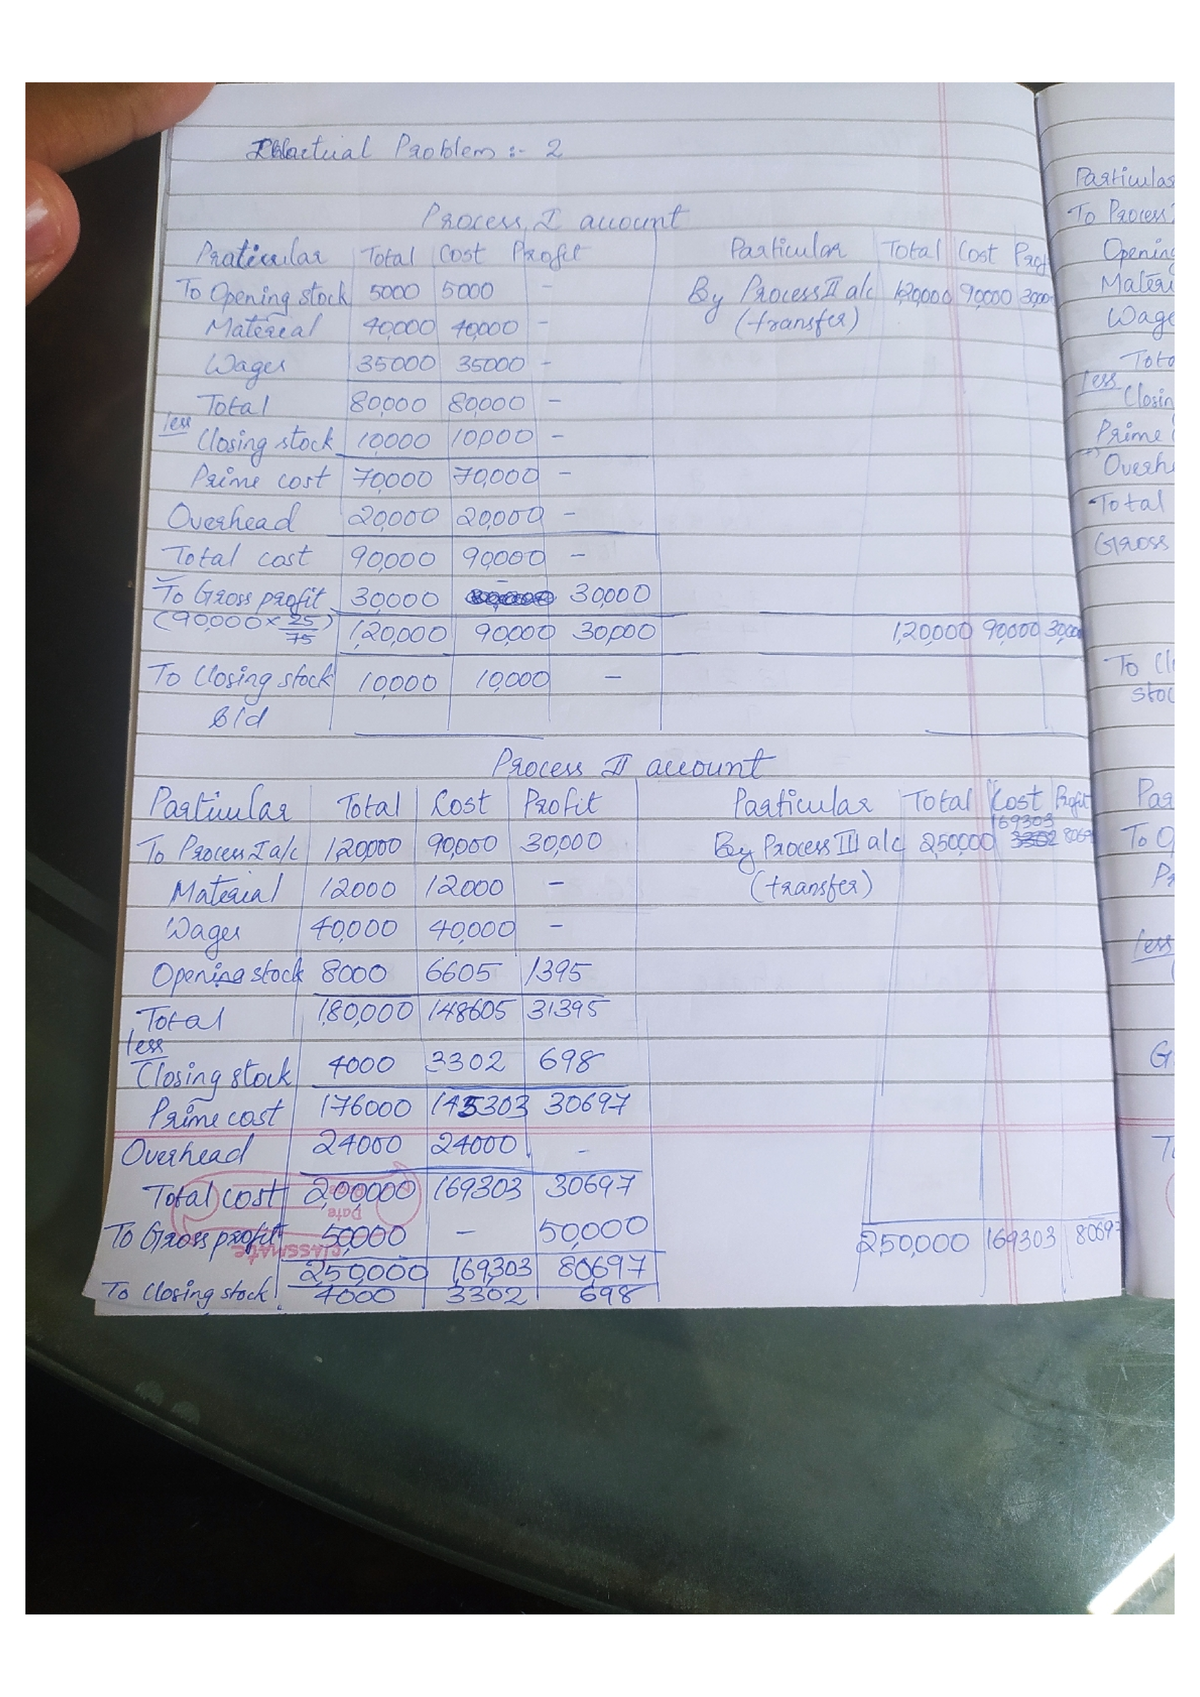 Problem :- 2
Process I account
Praticular Total Cost Profit Particular Total Cost Prof
To Opening stock 5000 5000 - By Process II a/c 1,20,000 90,000 30,00
Material 40,000 40,000 - (transfer)
Wages 35000 35000 -
Total 80,000 80,000 -
less
Closing stock 10,000 10,000 -
Prime cost 70,000 70,000 -
Overhead 20,000 20,000 -
Total cost 90,000 90,000 -
To Gross profit 30,000 - 30,000
(90,000 × 25/75) 1,20,000 90,000 30,000 1,20,000 90,000 30,000
To Closing stock 10,000 10,000 -
b/d
Process II account
Particular Total Cost Profit Particular Total Cost Profit
To Process I a/c 1,20,000 90,000 30,000 By Process III a/c 2,50,000 169303 8069
Material 12000 12000 - (transfer)
Wages 40,000 40,000 -
Opening stock 8000 6605 1395
Total 1,80,000 148605 31395
less
Closing stock 4000 3302 698
Prime cost 176000 145303 30697
Overhead 24000 24000 -
Total cost 2,00,000 169303 30697
To Gross profit 50,000 - 50,000
2,50,000 1,69,303 80697 250,000 169303 80697
To Closing stock 4000 3302 698
classmate
Date
Particular
To Process
Opening
Materi
Wage
Tota
less
Closin
Prime
Overhe
Total
Gross
To Cl
stoc
Par
To O
Pr
less
G
T